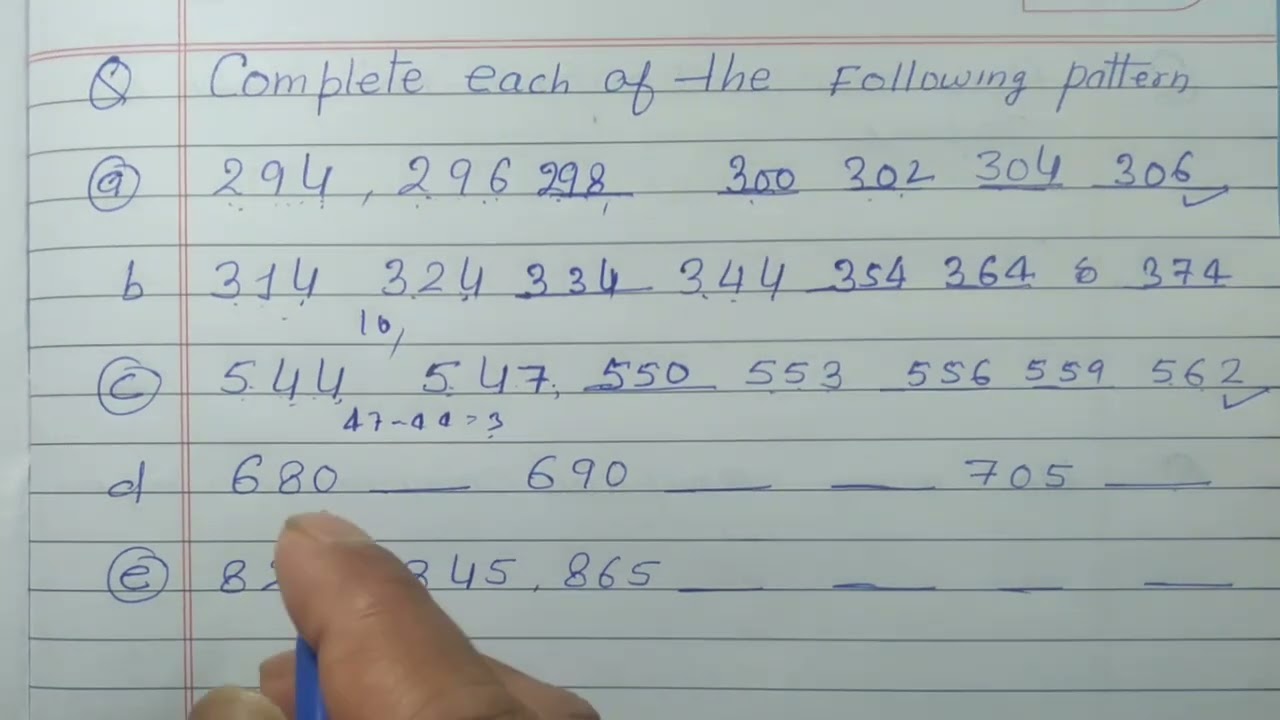 Q Complete each of the Following pattern
a 294, 296 298 300 302 304 306
b 314 324 334 344 354 364 374
10,
c 544 547, 550 553 556 559 562
47-44=3
d 680 690 705
e 845, 865